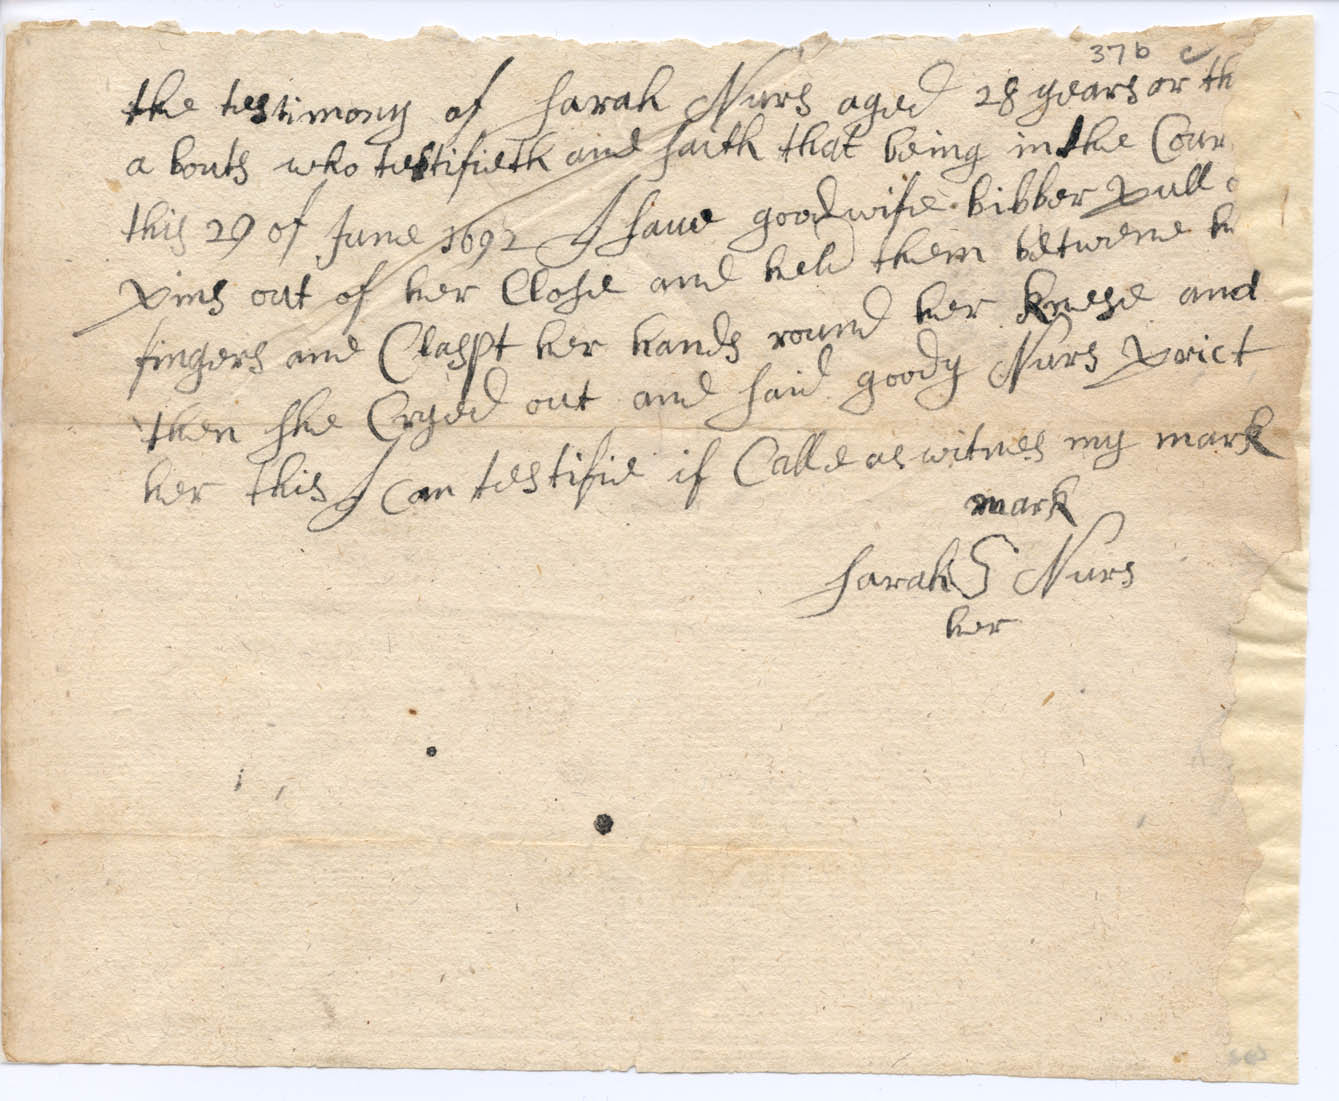 37b c
the testimony of Sarah Nurs aged 28 years or th
a bouts who testifieth and saith that being in the Cour
this 29 of June 1692 I saue goodwife bibber pull o
pins out of her Close and held them betwene h
fingers and Claspt her hands round her knese and
then she Cryed out and said goody Nurs prict
her this I can testifie if Calle as witnes my mark
mark
Sarah S Nurs
her